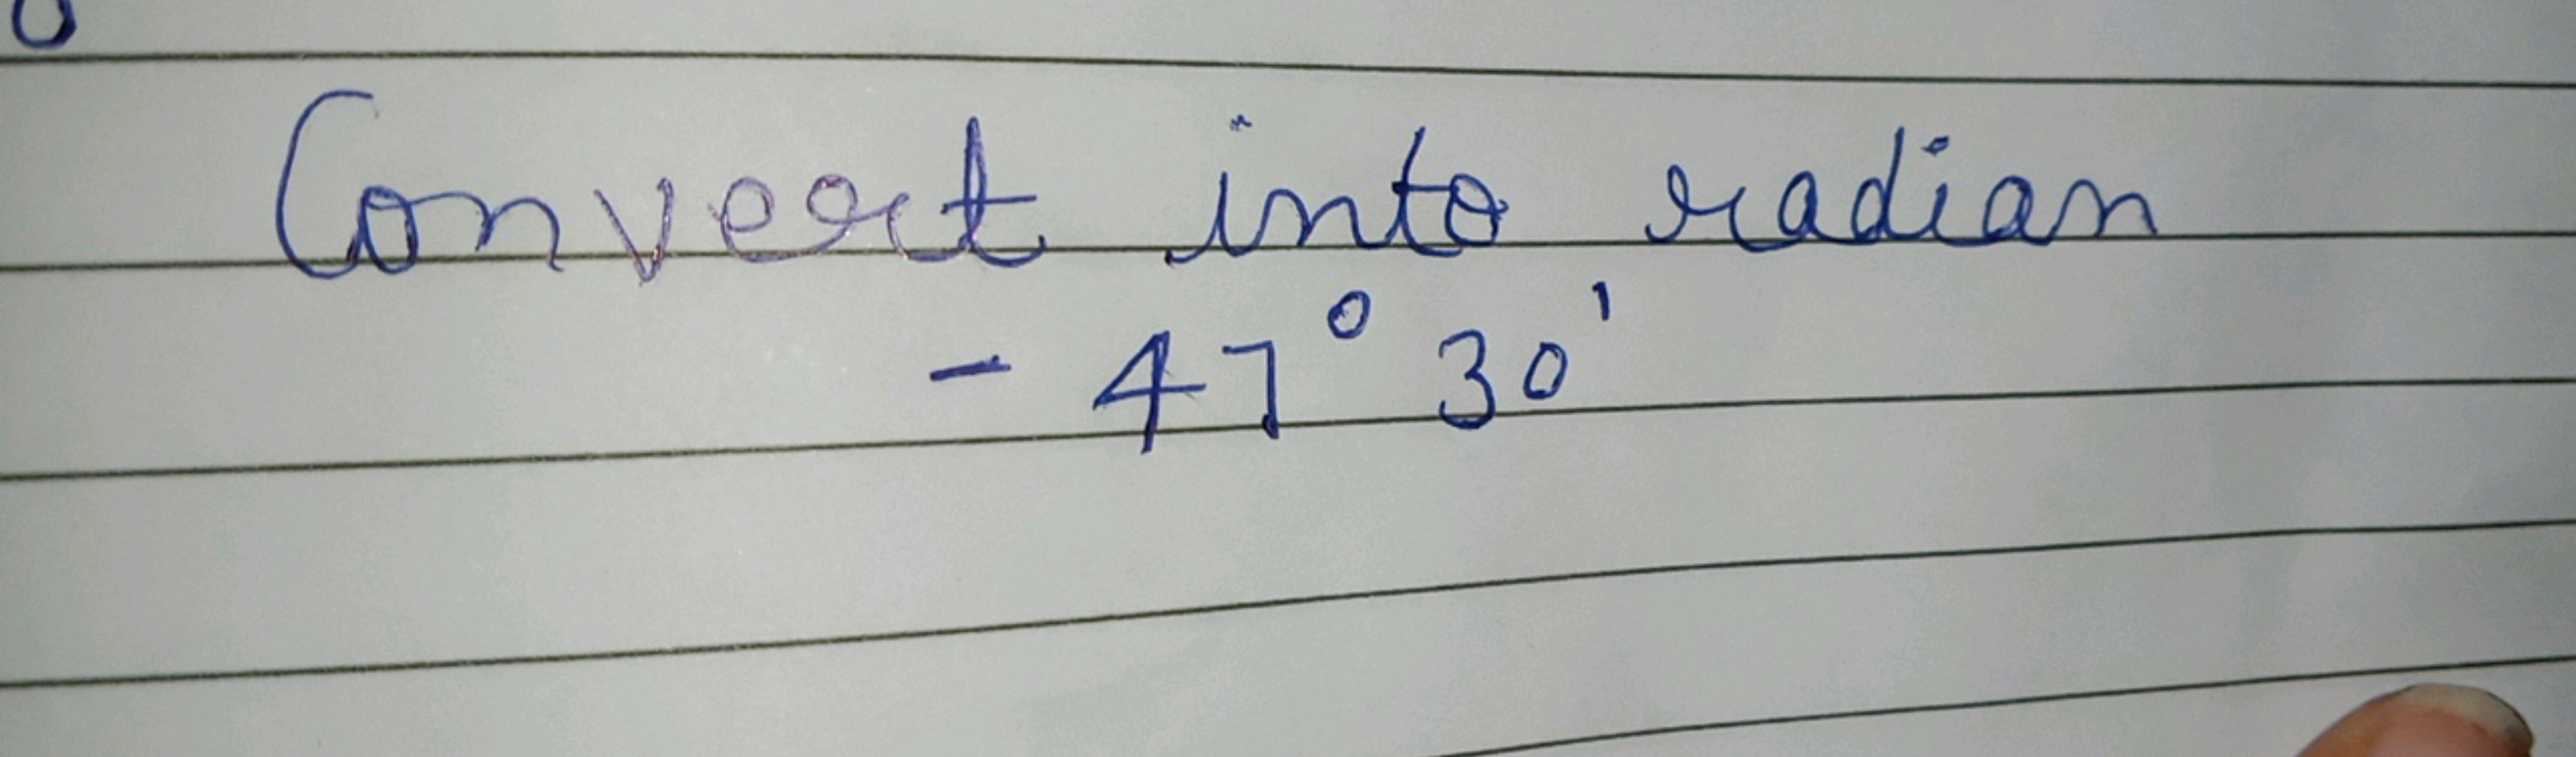 Convert into radian
- 47° 30'